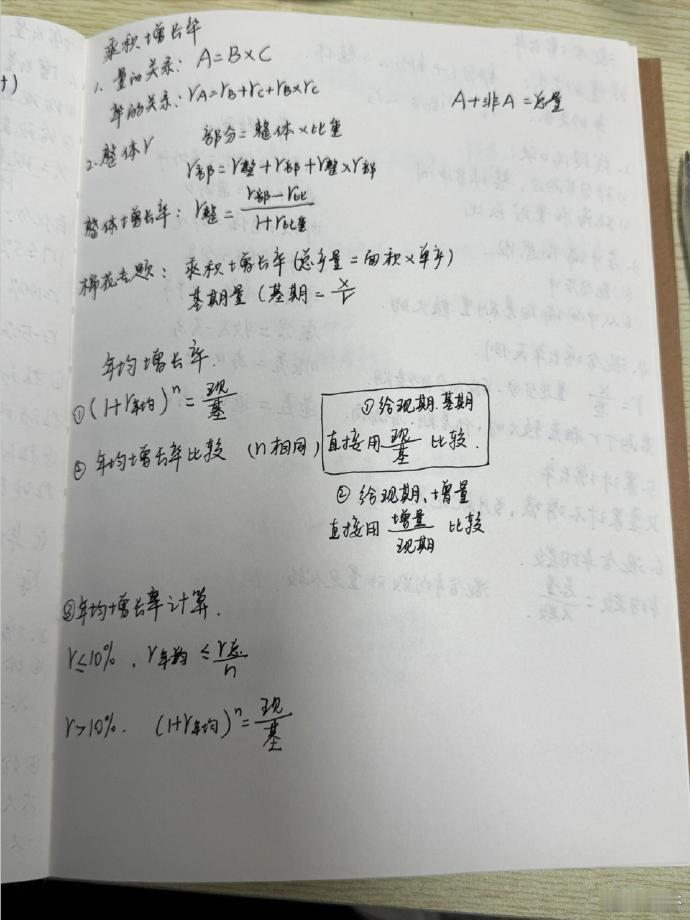 乘积增长率
1. 量的关系: A=B×C
率的关系: rA=rB+rC+rB×rC
A+非A=总量
2. 整体r 部分=整体×比重
r部=r整+r部+r整×r部
整体增长率: r整=(r部-r比)/(1+r比重)
棉花专题: 乘积增长率(总产量=面积×单产)
基期量(基期=x/r
年均增长率.
①(1+r年均)^n=现/基
② 年均增长率比较 (n相同)
①给现期.基期
直接用 现/基 比较.
② 给现期、增量
直接用 增量/现期 比较
③年均增长率计算.
r≤10%, r年均≤r总/n
r>10%. (1+r年均)^n=现/基